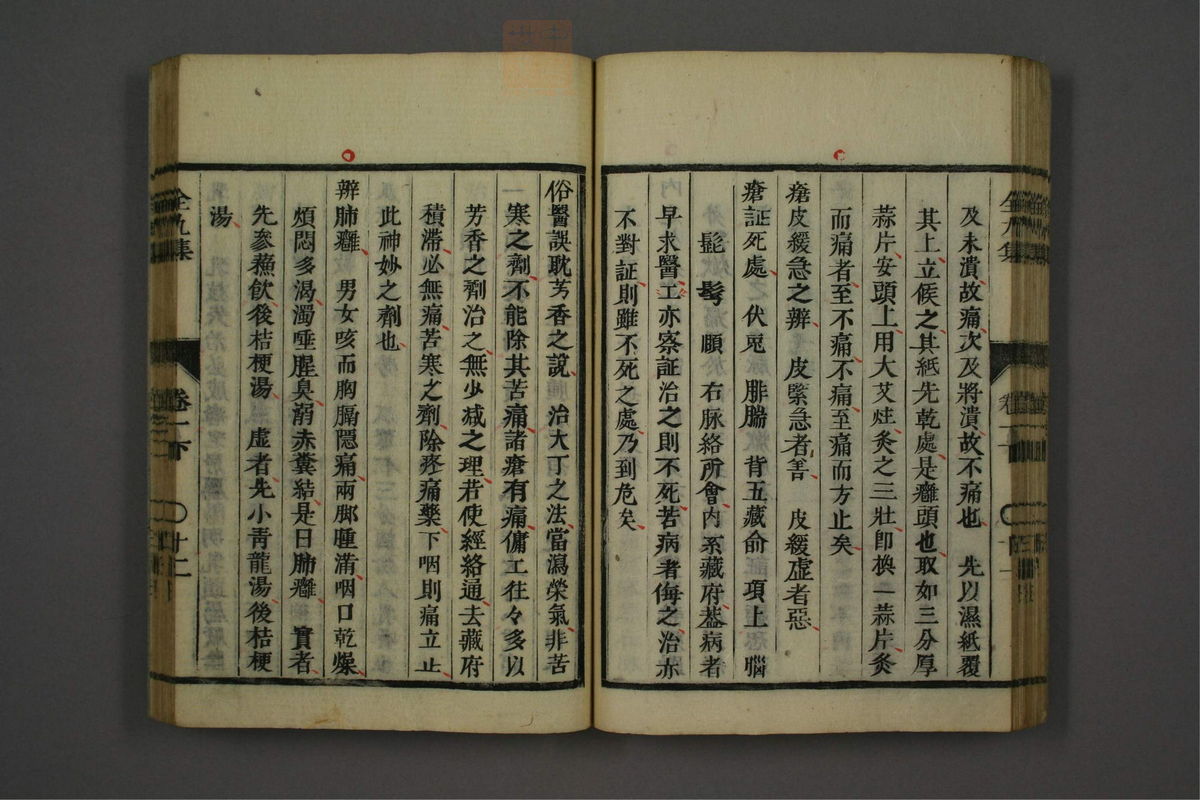 及未潰故痛次及將潰故不痛也　先以濕紙覆
其上立候之其紙先乾處是癰頭也取如三分厚
蒜片安頭上用大艾炷灸之三壯卽換一蒜片灸
而痛者至不痛不痛至痛而方止矣
瘡皮緩急之辨　皮緊急者善　皮緩虛者惡
瘡証死處　伏兎　腓腨　背五藏俞　項上　腦
髭　髩　頤　右脉絡所會內系藏府蓋病者
早求醫工亦察証治之則不死若病者侮之治亦
不對証則雖不死之處乃到危矣
俗醫誤耽芳香之說　治大丁之法當瀉榮氣非苦
寒之劑不能除其苦痛諸瘡有痛傭工往々多以
芳香之劑治之無少减之理若使經絡通去藏府
積滯必無痛苦寒之劑除疼痛藥下咽則痛立止
此神妙之劑也
辨肺癰　男女咳而胸膈隱痛兩脚腫滿咽口乾燥
煩悶多渴濁唾腥臭溺赤糞結是曰肺癰　實者
先參蘓飲後桔梗湯　虛者先小靑龍湯後桔梗
湯
全九集
卷一下
〇 廿二